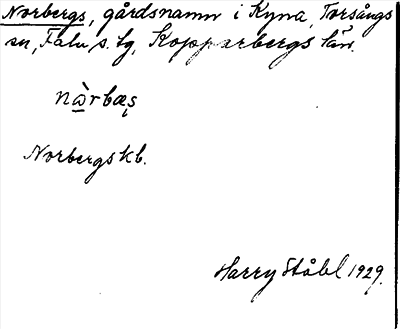 Norbergs, gårdsnamn i Kyna, Torsångs
sn, Falu s. tg, Kopparbergs län.
nὰrbæs̨
Norbergs kb.
Harry Ståhl 1929.